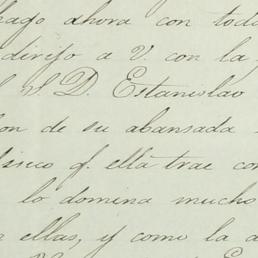 hago ahora con toda
dirijo a V. con la
S. D. Estanislao
de su abansada
sico q. ella trae con
lo domina mucho
ellas, y como la a